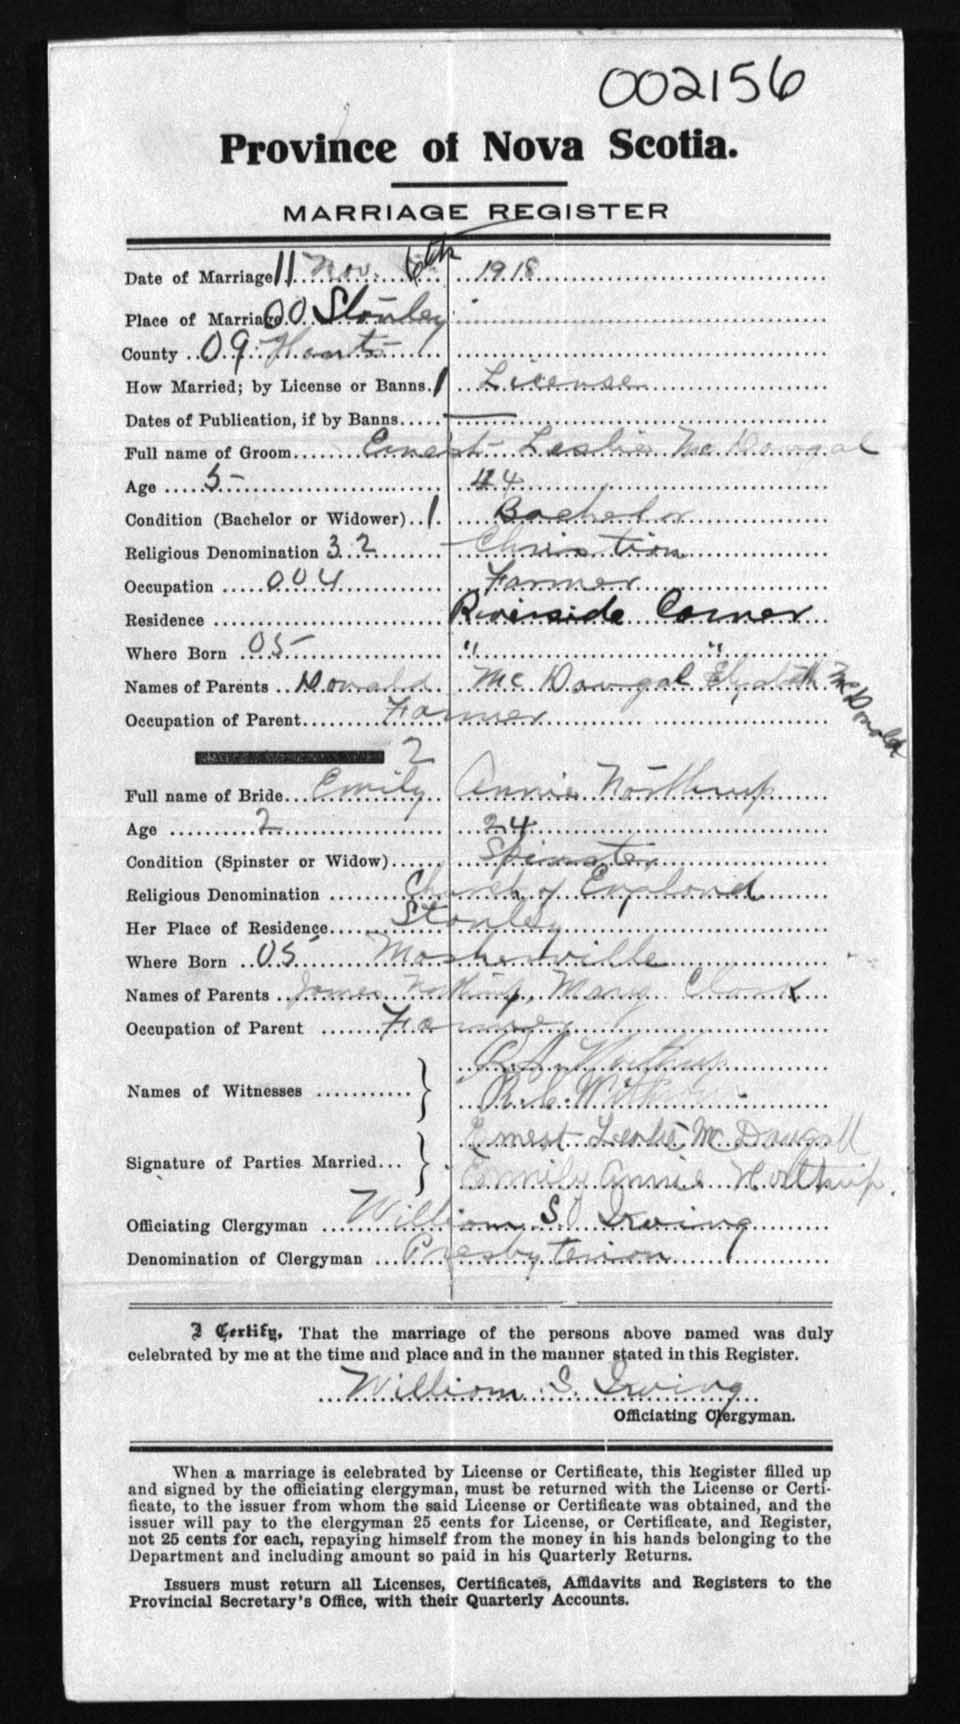 002156
Province of Nova Scotia.
MARRIAGE REGISTER
Date of Marriage 11 Nov. 6th 1918
Place of Marriage 00 Stanley
County 09 Hants
How Married; by License or Banns. 1 License
Dates of Publication, if by Banns
Full name of Groom Ernest Leslie McDougal
Age 5 44
Condition (Bachelor or Widower) 1 Bachelor
Religious Denomination 32 Christian
Occupation 004 Farmer
Residence Riverside Corner
Where Born 05 " "
Names of Parents Donald McDougal Elyabeth McDonald
Occupation of Parent Farmer
2
Full name of Bride Emily Annie Northrup
Age 2 24
Condition (Spinster or Widow) Spinster
Religious Denomination Church of England
Her Place of Residence Stanley
Where Born 05 Mosherville
Names of Parents James Northrup, Mary Clark
Occupation of Parent Farmer
Names of Witnesses Northrup
R. C.
Signature of Parties Married Ernest Leslie McDougall
Emily Annie Northrup.
Officiating Clergyman William S. Irving
Denomination of Clergyman Presbyterian
I Certify, That the marriage of the persons above named was duly
celebrated by me at the time and place and in the manner stated in this Register.
William S. Irving
Officiating Clergyman.
When a marriage is celebrated by License or Certificate, this Register filled up
and signed by the officiating clergyman, must be returned with the License or Certi-
ficate, to the issuer from whom the said License or Certificate was obtained, and the
issuer will pay to the clergyman 25 cents for License, or Certificate, and Register,
not 25 cents for each, repaying himself from the money in his hands belonging to the
Department and including amount so paid in his Quarterly Returns.
Issuers must return all Licenses, Certificates, Affidavits and Registers to the
Provincial Secretary's Office, with their Quarterly Accounts.